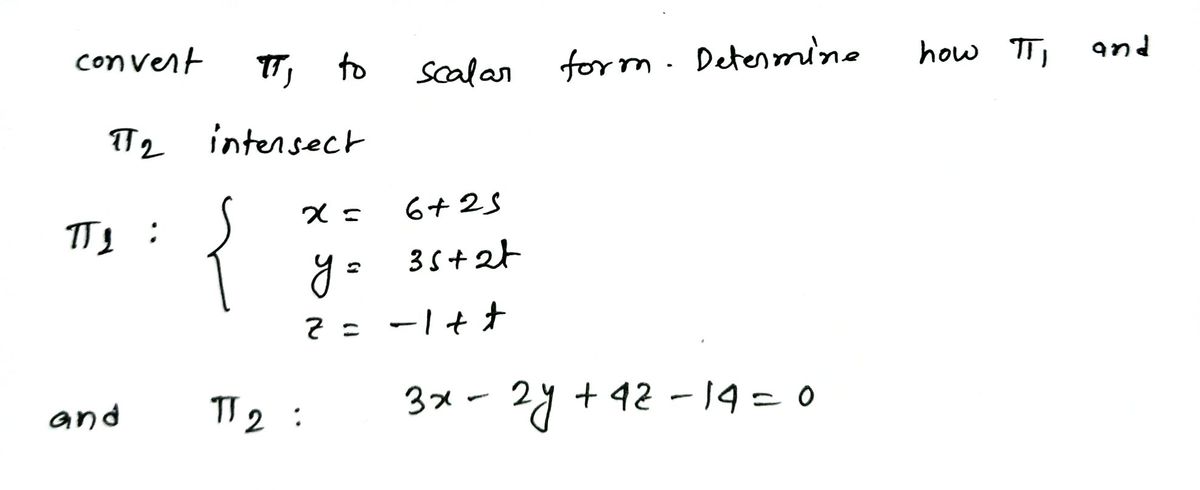 convert π₁ to scalar form. Determine how π₁ and
π₂ intersect
π₁ : { x = 6+2s
y = 3s+2t
z = -1+t
and π₂ : 3x - 2y + 4z - 14 = 0